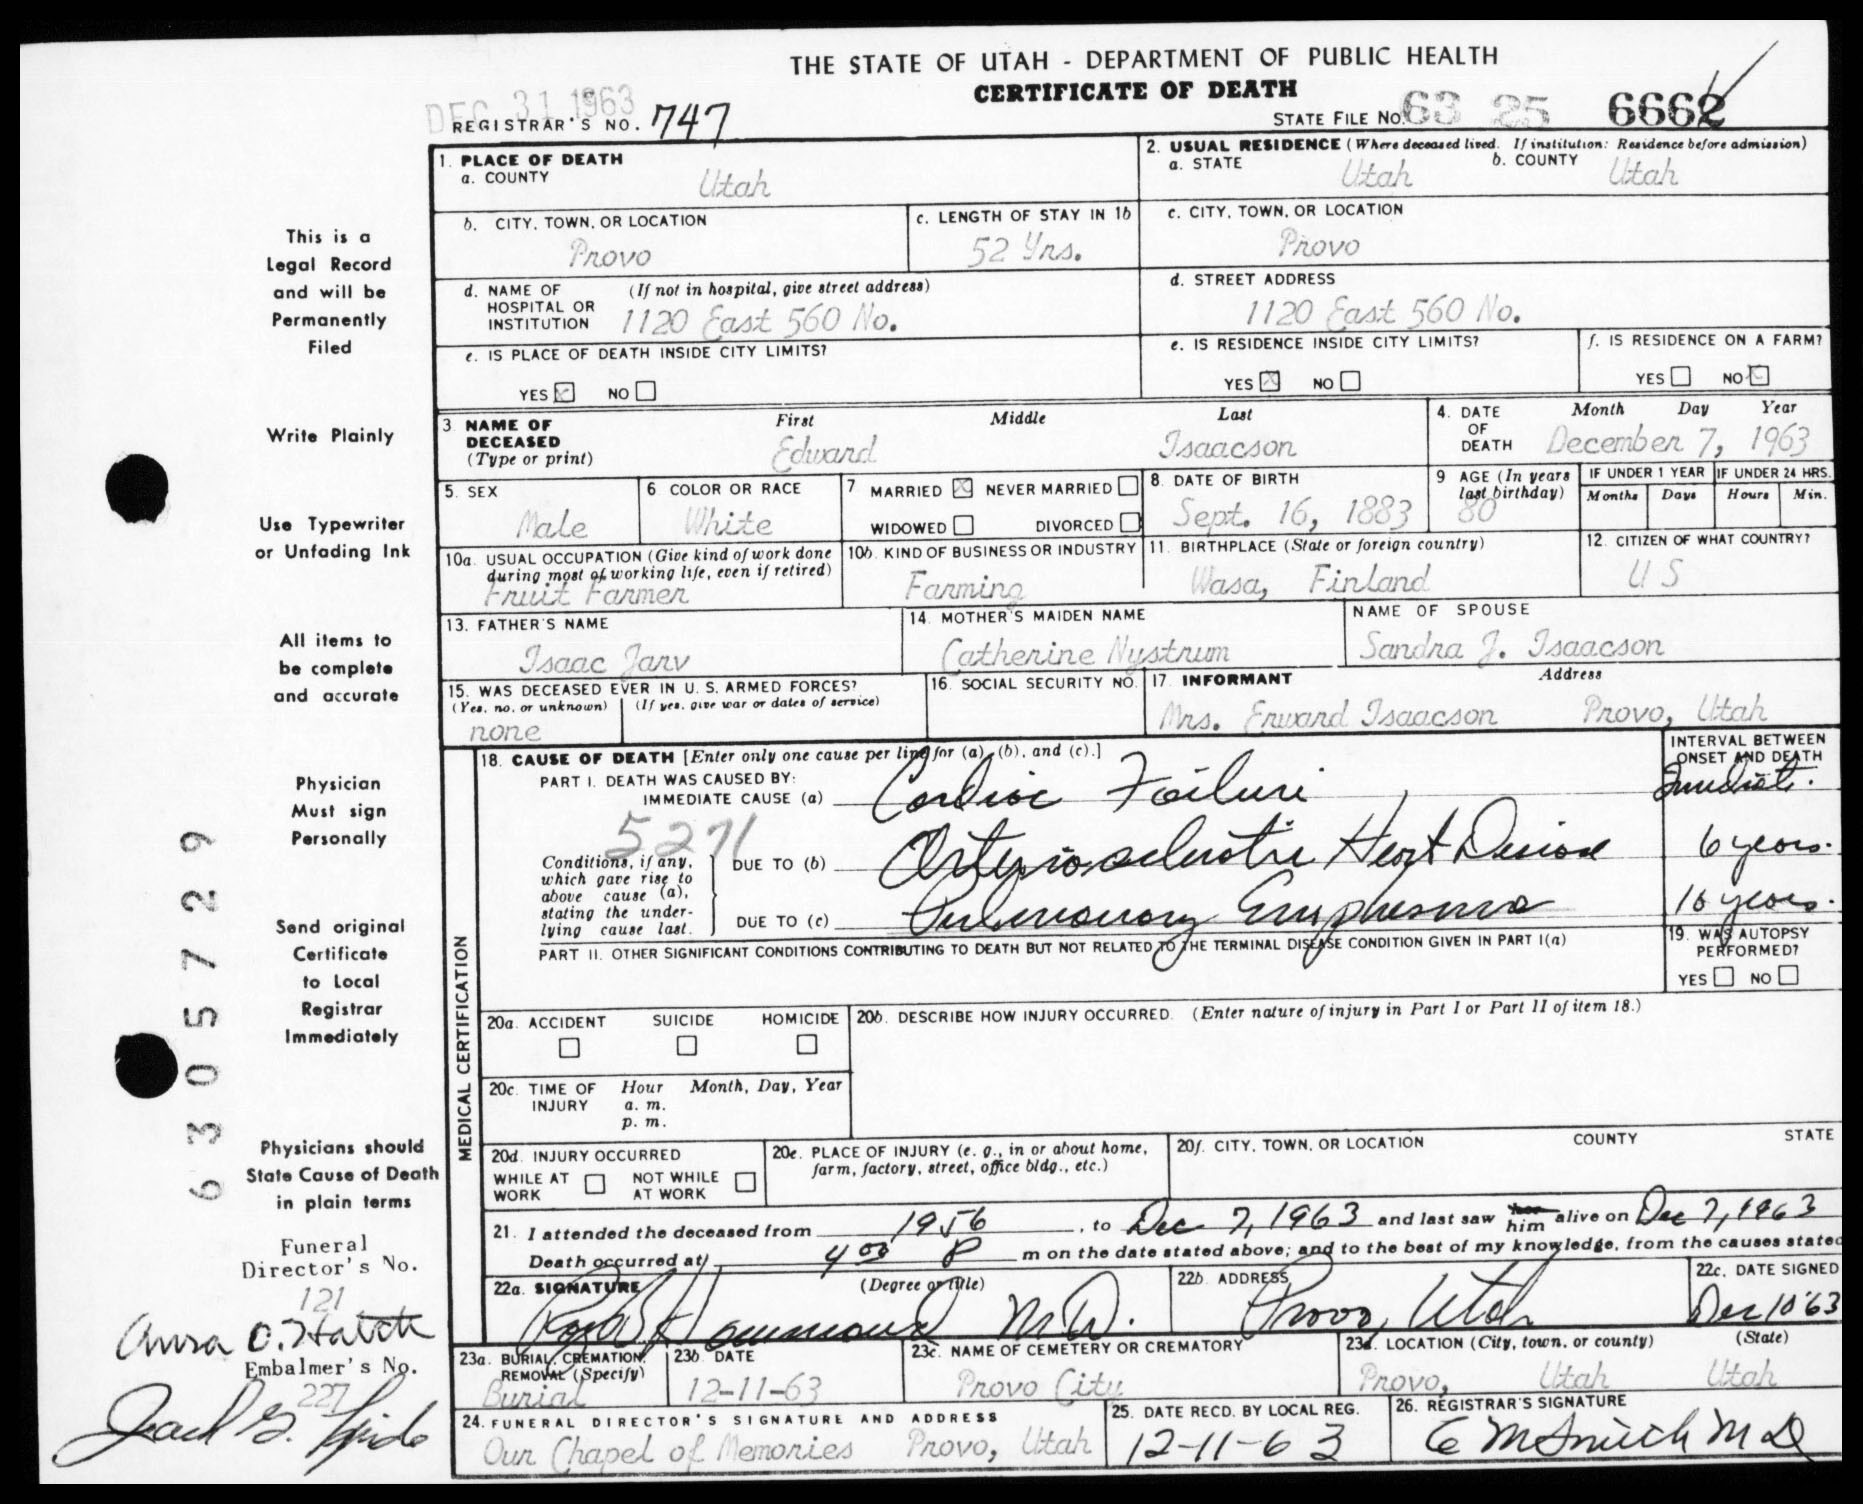 THE STATE OF UTAH - DEPARTMENT OF PUBLIC HEALTH
CERTIFICATE OF DEATH
DEC 31 1963
REGISTRAR'S NO. 747
STATE FILE NO. 63 25 6662
1. PLACE OF DEATH
a. COUNTY
Utah
2. USUAL RESIDENCE (Where deceased lived. If institution: Residence before admission)
a. STATE Utah b. COUNTY Utah
b. CITY, TOWN, OR LOCATION
Provo
c. LENGTH OF STAY IN 1b
52 Yrs.
c. CITY, TOWN, OR LOCATION
Provo
d. NAME OF (If not in hospital, give street address)
HOSPITAL OR
INSTITUTION 1120 East 560 No.
d. STREET ADDRESS
1120 East 560 No.
e. IS PLACE OF DEATH INSIDE CITY LIMITS?
YES X NO
e. IS RESIDENCE INSIDE CITY LIMITS?
YES X NO
f. IS RESIDENCE ON A FARM?
YES NO X
3. NAME OF First Middle Last
DECEASED
(Type or print) Edward Isaacson
4. DATE Month Day Year
OF
DEATH December 7, 1963
5. SEX
Male
6 COLOR OR RACE
White
7 MARRIED X NEVER MARRIED
WIDOWED DIVORCED
8. DATE OF BIRTH
Sept. 16, 1883
9 AGE (In years
last birthday)
80
IF UNDER 1 YEAR
Months Days
IF UNDER 24 HRS.
Hours Min.
10a. USUAL OCCUPATION (Give kind of work done
during most of working life, even if retired)
Fruit Farmer
10b. KIND OF BUSINESS OR INDUSTRY
Farming
11. BIRTHPLACE (State or foreign country)
Wasa, Finland
12. CITIZEN OF WHAT COUNTRY?
U S
13. FATHER'S NAME
Isaac Janv
14. MOTHER'S MAIDEN NAME
Catherine Nystrum
NAME OF SPOUSE
Sandra J. Isaacson
15. WAS DECEASED EVER IN U. S. ARMED FORCES?
(Yes, no, or unknown) (If yes, give war or dates of service)
none
16. SOCIAL SECURITY NO.
17. INFORMANT Address
Mrs. Erward Isaacson Provo, Utah
18. CAUSE OF DEATH [Enter only one cause per line for (a), (b), and (c).]
PART I. DEATH WAS CAUSED BY:
IMMEDIATE CAUSE (a) Cardiac Failure
INTERVAL BETWEEN
ONSET AND DEATH
5271
Conditions, if any,
which gave rise to
above cause (a),
stating the under-
lying cause last.
DUE TO (b) Arteriosclerotic Heart Disease 6 years.
DUE TO (c) Pulmonary Emphysema 10 years.
PART II. OTHER SIGNIFICANT CONDITIONS CONTRIBUTING TO DEATH BUT NOT RELATED TO THE TERMINAL DISEASE CONDITION GIVEN IN PART I(a)
19. WAS AUTOPSY
PERFORMED?
YES NO
MEDICAL CERTIFICATION
20a. ACCIDENT SUICIDE HOMICIDE
20b. DESCRIBE HOW INJURY OCCURRED. (Enter nature of injury in Part I or Part II of item 18.)
20c. TIME OF Hour Month, Day, Year
INJURY a. m.
p. m.
20d. INJURY OCCURRED
WHILE AT NOT WHILE
WORK AT WORK
20e. PLACE OF INJURY (e. g., in or about home,
farm, factory, street, office bldg., etc.)
20f. CITY, TOWN, OR LOCATION COUNTY STATE
21. I attended the deceased from 1956, to Dec 7, 1963 and last saw her him alive on Dec 7, 1963
Death occurred at 4 00 P m on the date stated above; and to the best of my knowledge, from the causes stated
22a. SIGNATURE (Degree or title)
Hammond M.D.
22b. ADDRESS
Provo, Utah
22c. DATE SIGNED
Dec 10 '63
23a. BURIAL, CREMATION,
REMOVAL (Specify)
Burial
23b. DATE
12-11-63
23c. NAME OF CEMETERY OR CREMATORY
Provo City
23d. LOCATION (City, town, or county) (State)
Provo, Utah Utah
24. FUNERAL DIRECTOR'S SIGNATURE AND ADDRESS
Our Chapel of Memories Provo, Utah
25. DATE RECD. BY LOCAL REG.
12-11-63
26. REGISTRAR'S SIGNATURE
This is a
Legal Record
and will be
Permanently
Filed
Write Plainly
Use Typewriter
or Unfading Ink
All items to
be complete
and accurate
Physician
Must sign
Personally
Send original
Certificate
to Local
Registrar
Immediately
Physicians should
State Cause of Death
in plain terms
6305729
Funeral
Director's No.
121
Embalmer's No.
227